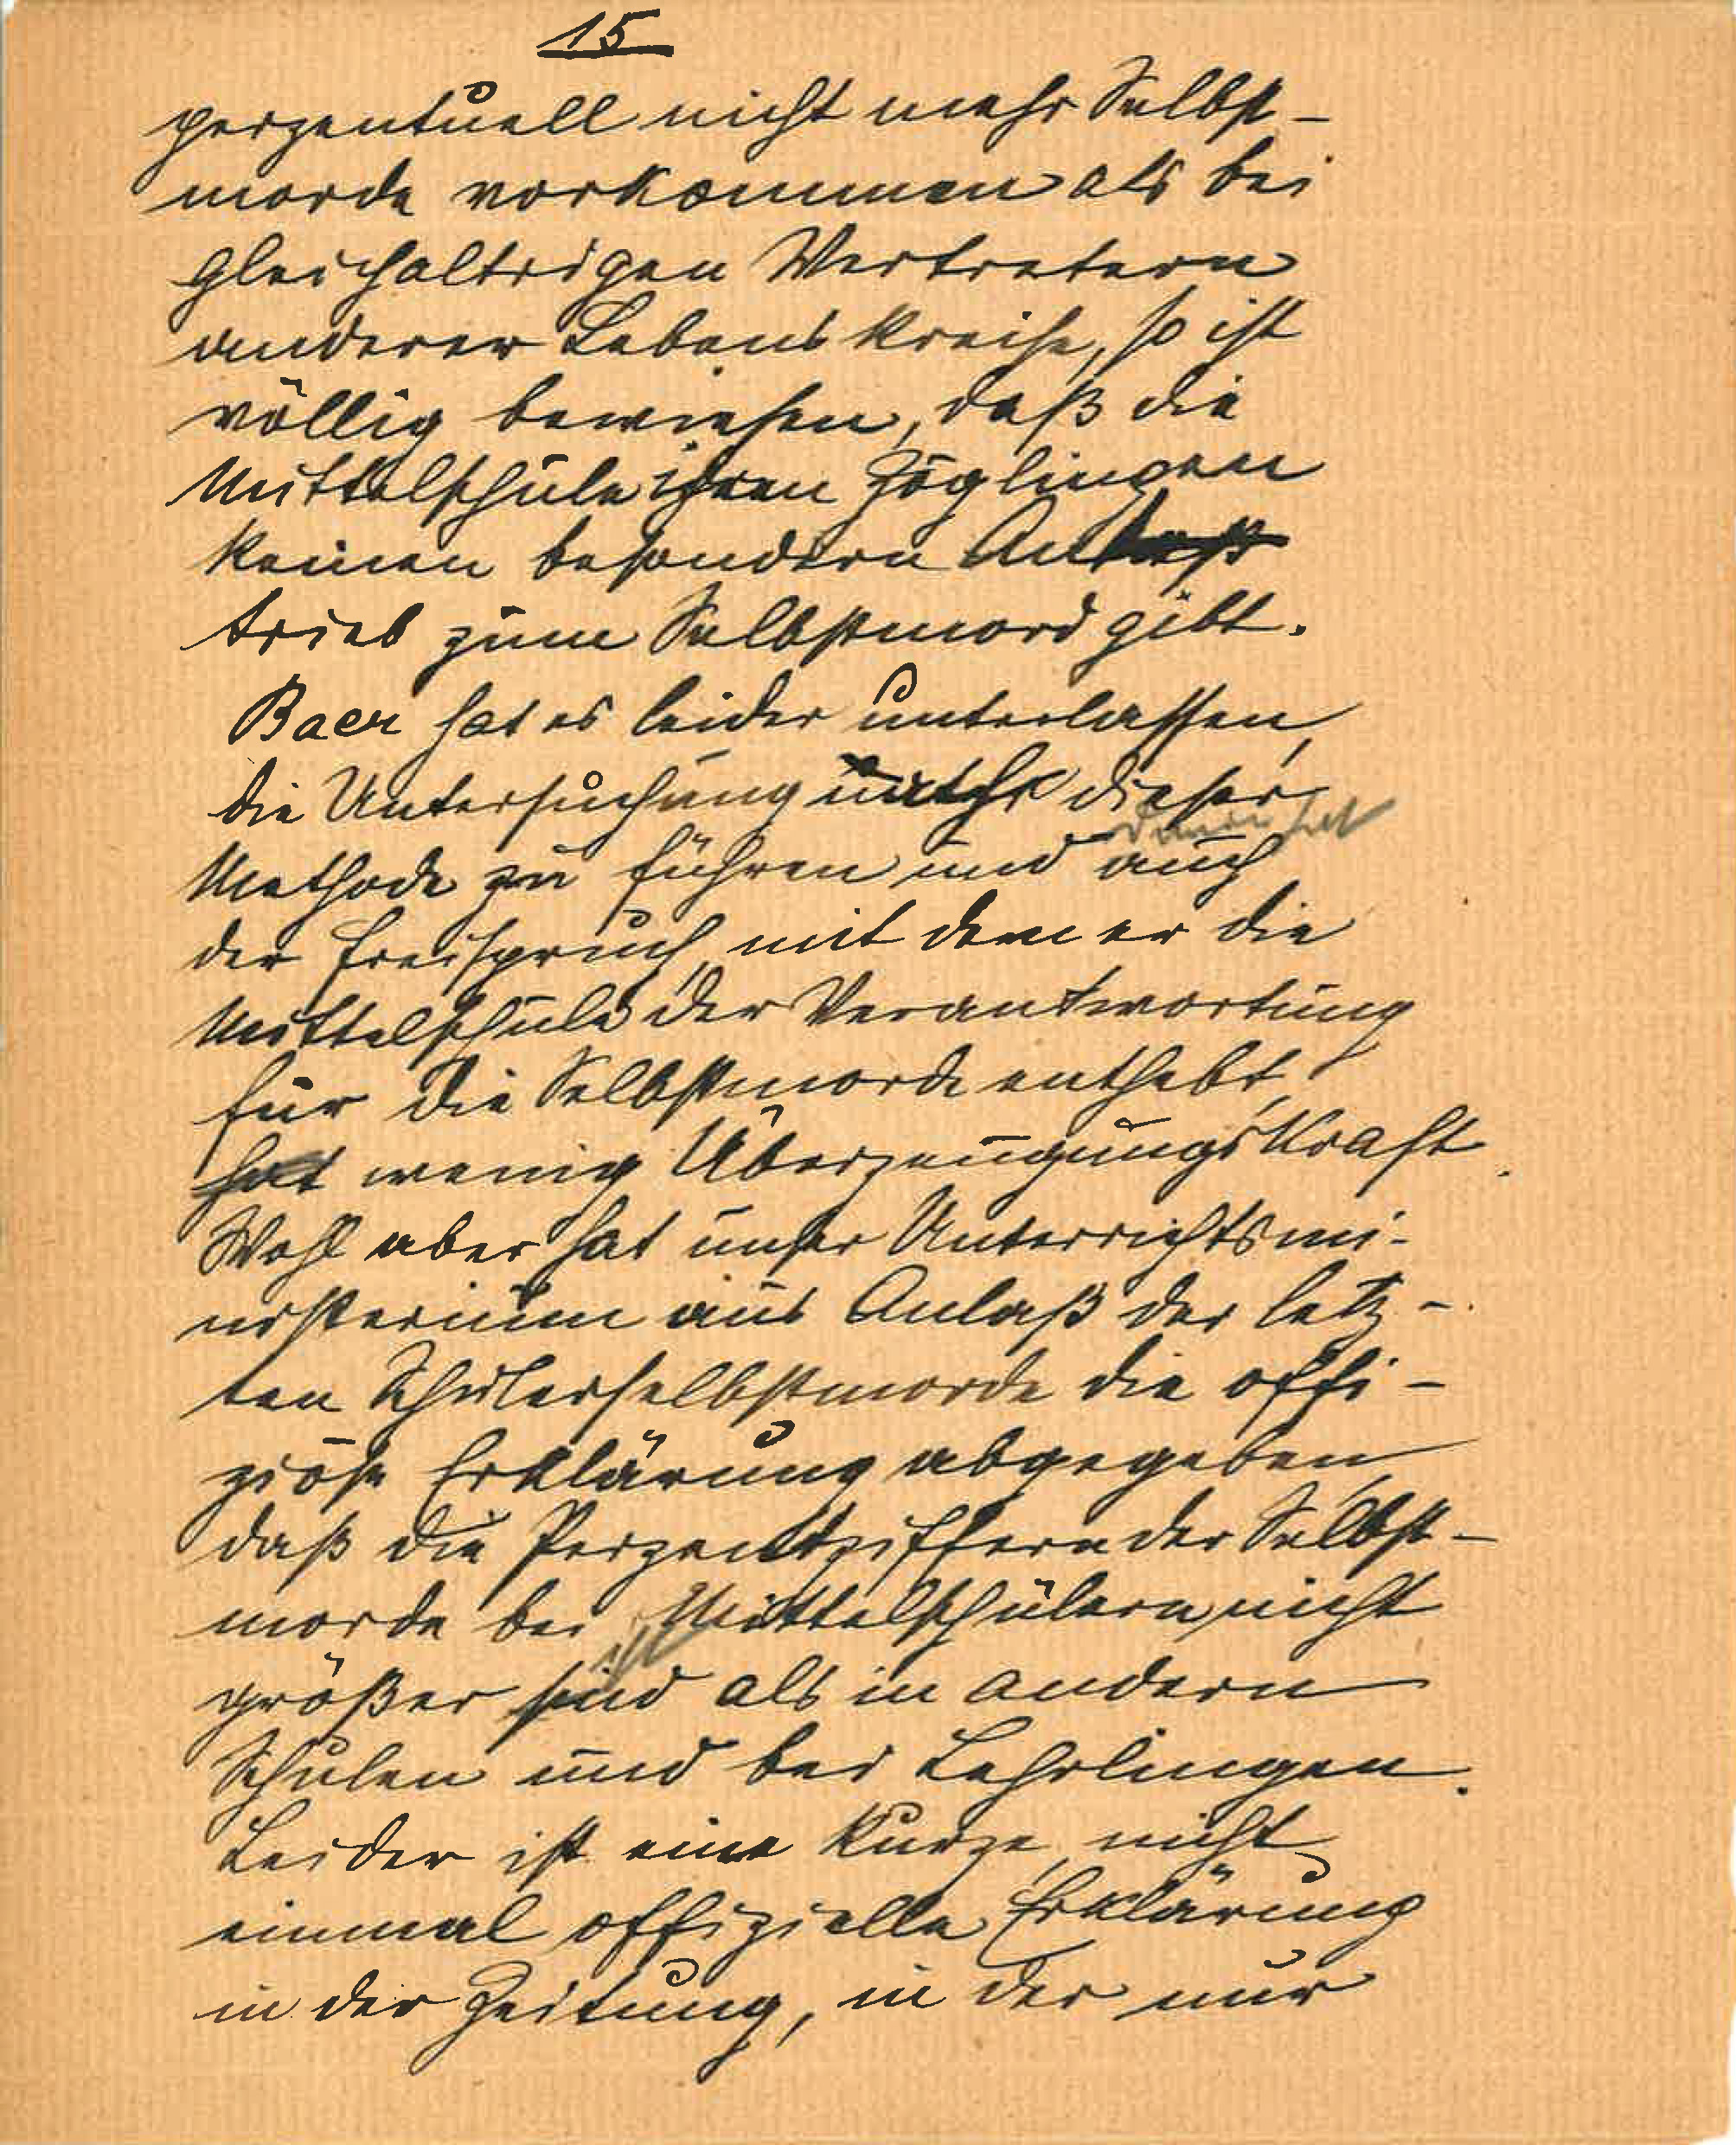 15
perzentuell nicht mehr Selbst-
morde vorkommen als bei
gleichaltrigen Vertretern
anderer Lebenskreise, so ist
völlig bewiesen, daß die
Mittelschule ihren Zöglingen
keinen besondern Anlaß
trieb zum Selbstmord gibt.
Baer hat es leider unterlassen,
die Untersuchung nach dieser
Methode zu führen und auch
der Freispruch, mit dem er die
Mittelschule der Verantwortung
für die Selbstmorde enthebt,
hat wenig Überzeugungskraft.
Wohl aber hat unser Unterrichtsmi-
nisterium aus Anlaß der letz-
ten Schülerselbstmorde die offi-
ziöse Erklärung abgegeben,
daß die Perzentziffern der Selbst-
morde bei Mittelschülern nicht
größer sind als in andern
Schulen und bei Lehrlingen.
Leider ist eine kurze, nicht
einmal offizielle Erklärung
in der Zeitung, in der nur